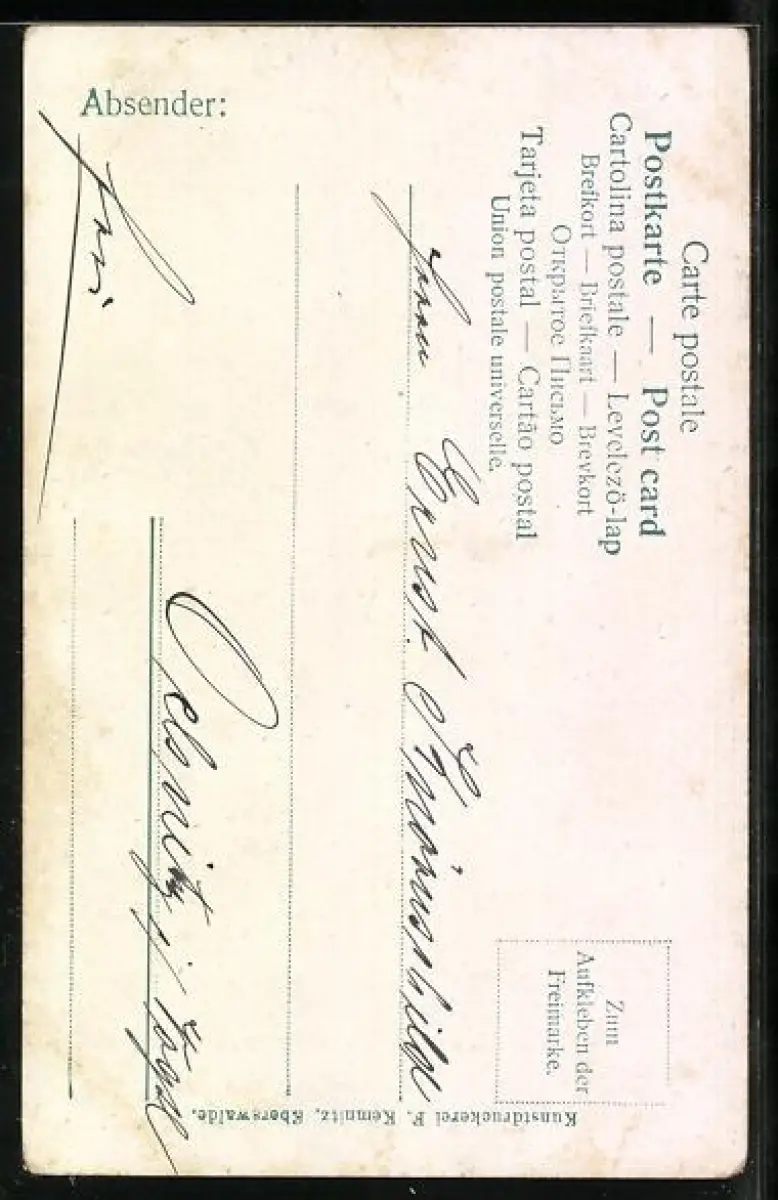 Carte postale
Postkarte — Post card
Cartolina postale — Levelező-lap
Brefkort — Briefkaart — Brevkort
Открытое Письмо
Tarjeta postal — Cartão postal
Union postale universelle.
Zum
Aufkleben der
Freimarke.
Ernst
Oelsnitz i/ Vogtl
Absender:
Kunstdruckerei F. Kemnitz, Eberswalde.